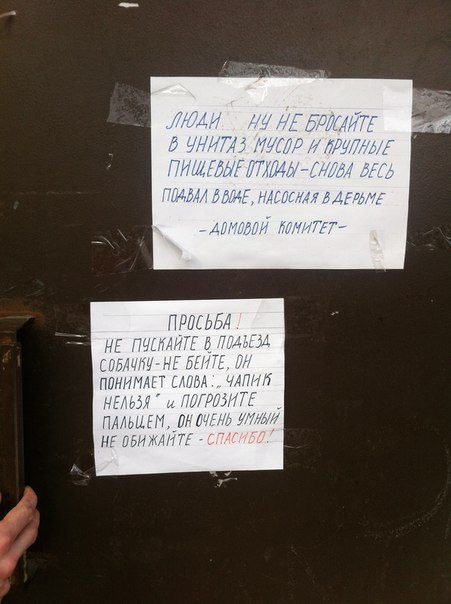 ЛЮДИ НУ НЕ БРОСАЙТЕ
В УНИТАЗ МУСОР И КРУПНЫЕ
ПИЩЕВЫЕ ОТХОДЫ – СНОВА ВЕСЬ
ПОДВАЛ В ВОДЕ, НАСОСНАЯ В ДЕРЬМЕ
– ДОМОВОЙ КОМИТЕТ –
ПРОСЬБА !
НЕ ПУСКАЙТЕ В ПОДЪЕЗД
СОБАЧКУ – НЕ БЕЙТЕ, ОН
ПОНИМАЕТ СЛОВА: „ЧАПИК
НЕЛЬЗЯ" и ПОГРОЗИТЕ
ПАЛЬЦЕМ, ОН ОЧЕНЬ УМНЫЙ
НЕ ОБИЖАЙТЕ – СПАСИБО!